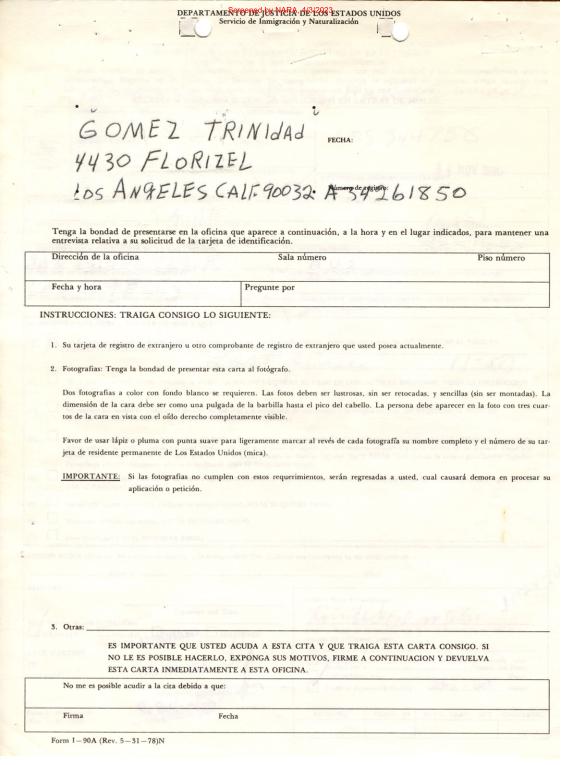 Screened by NARA, 4/3/2023
DEPARTAMENTO DE JUSTICIA DE LOS ESTADOS UNIDOS
Servicio de Inmigración y Naturalización
GOMEZ TRINIDAD
FECHA:
4430 FLORIZEL
LOS ANGELES CALIF. 90032 Número de registro: A 34261850
Tenga la bondad de presentarse en la oficina que aparece a continuación, a la hora y en el lugar indicados, para mantener una
entrevista relativa a su solicitud de la tarjeta de identificación.
Dirección de la oficina Sala número Piso número
Fecha y hora Pregunte por
INSTRUCCIONES: TRAIGA CONSIGO LO SIGUIENTE:
1. Su tarjeta de registro de extranjero u otro comprobante de registro de extranjero que usted posea actualmente.
2. Fotografías: Tenga la bondad de presentar esta carta al fotógrafo.
Dos fotografías a color con fondo blanco se requieren. Las fotos deben ser lustrosas, sin ser retocadas, y sencillas (sin ser montadas). La
dimensión de la cara debe ser como una pulgada de la barbilla hasta el pico del cabello. La persona debe aparecer en la foto con tres cuar-
tos de la cara en vista con el oído derecho completamente visible.
Favor de usar lápiz o pluma con punta suave para ligeramente marcar al revés de cada fotografía su nombre completo y el número de su tar-
jeta de residente permanente de Los Estados Unidos (mica).
IMPORTANTE: Si las fotografías no cumplen con estos requerimientos, serán regresadas a usted, cual causará demora en procesar su
aplicación o petición.
3. Otras:
ES IMPORTANTE QUE USTED ACUDA A ESTA CITA Y QUE TRAIGA ESTA CARTA CONSIGO. SI
NO LE ES POSIBLE HACERLO, EXPONGA SUS MOTIVOS, FIRME A CONTINUACION Y DEVUELVA
ESTA CARTA INMEDIATAMENTE A ESTA OFICINA.
No me es posible acudir a la cita debido a que:
Firma Fecha
Form I-90A (Rev. 5-31-78)N